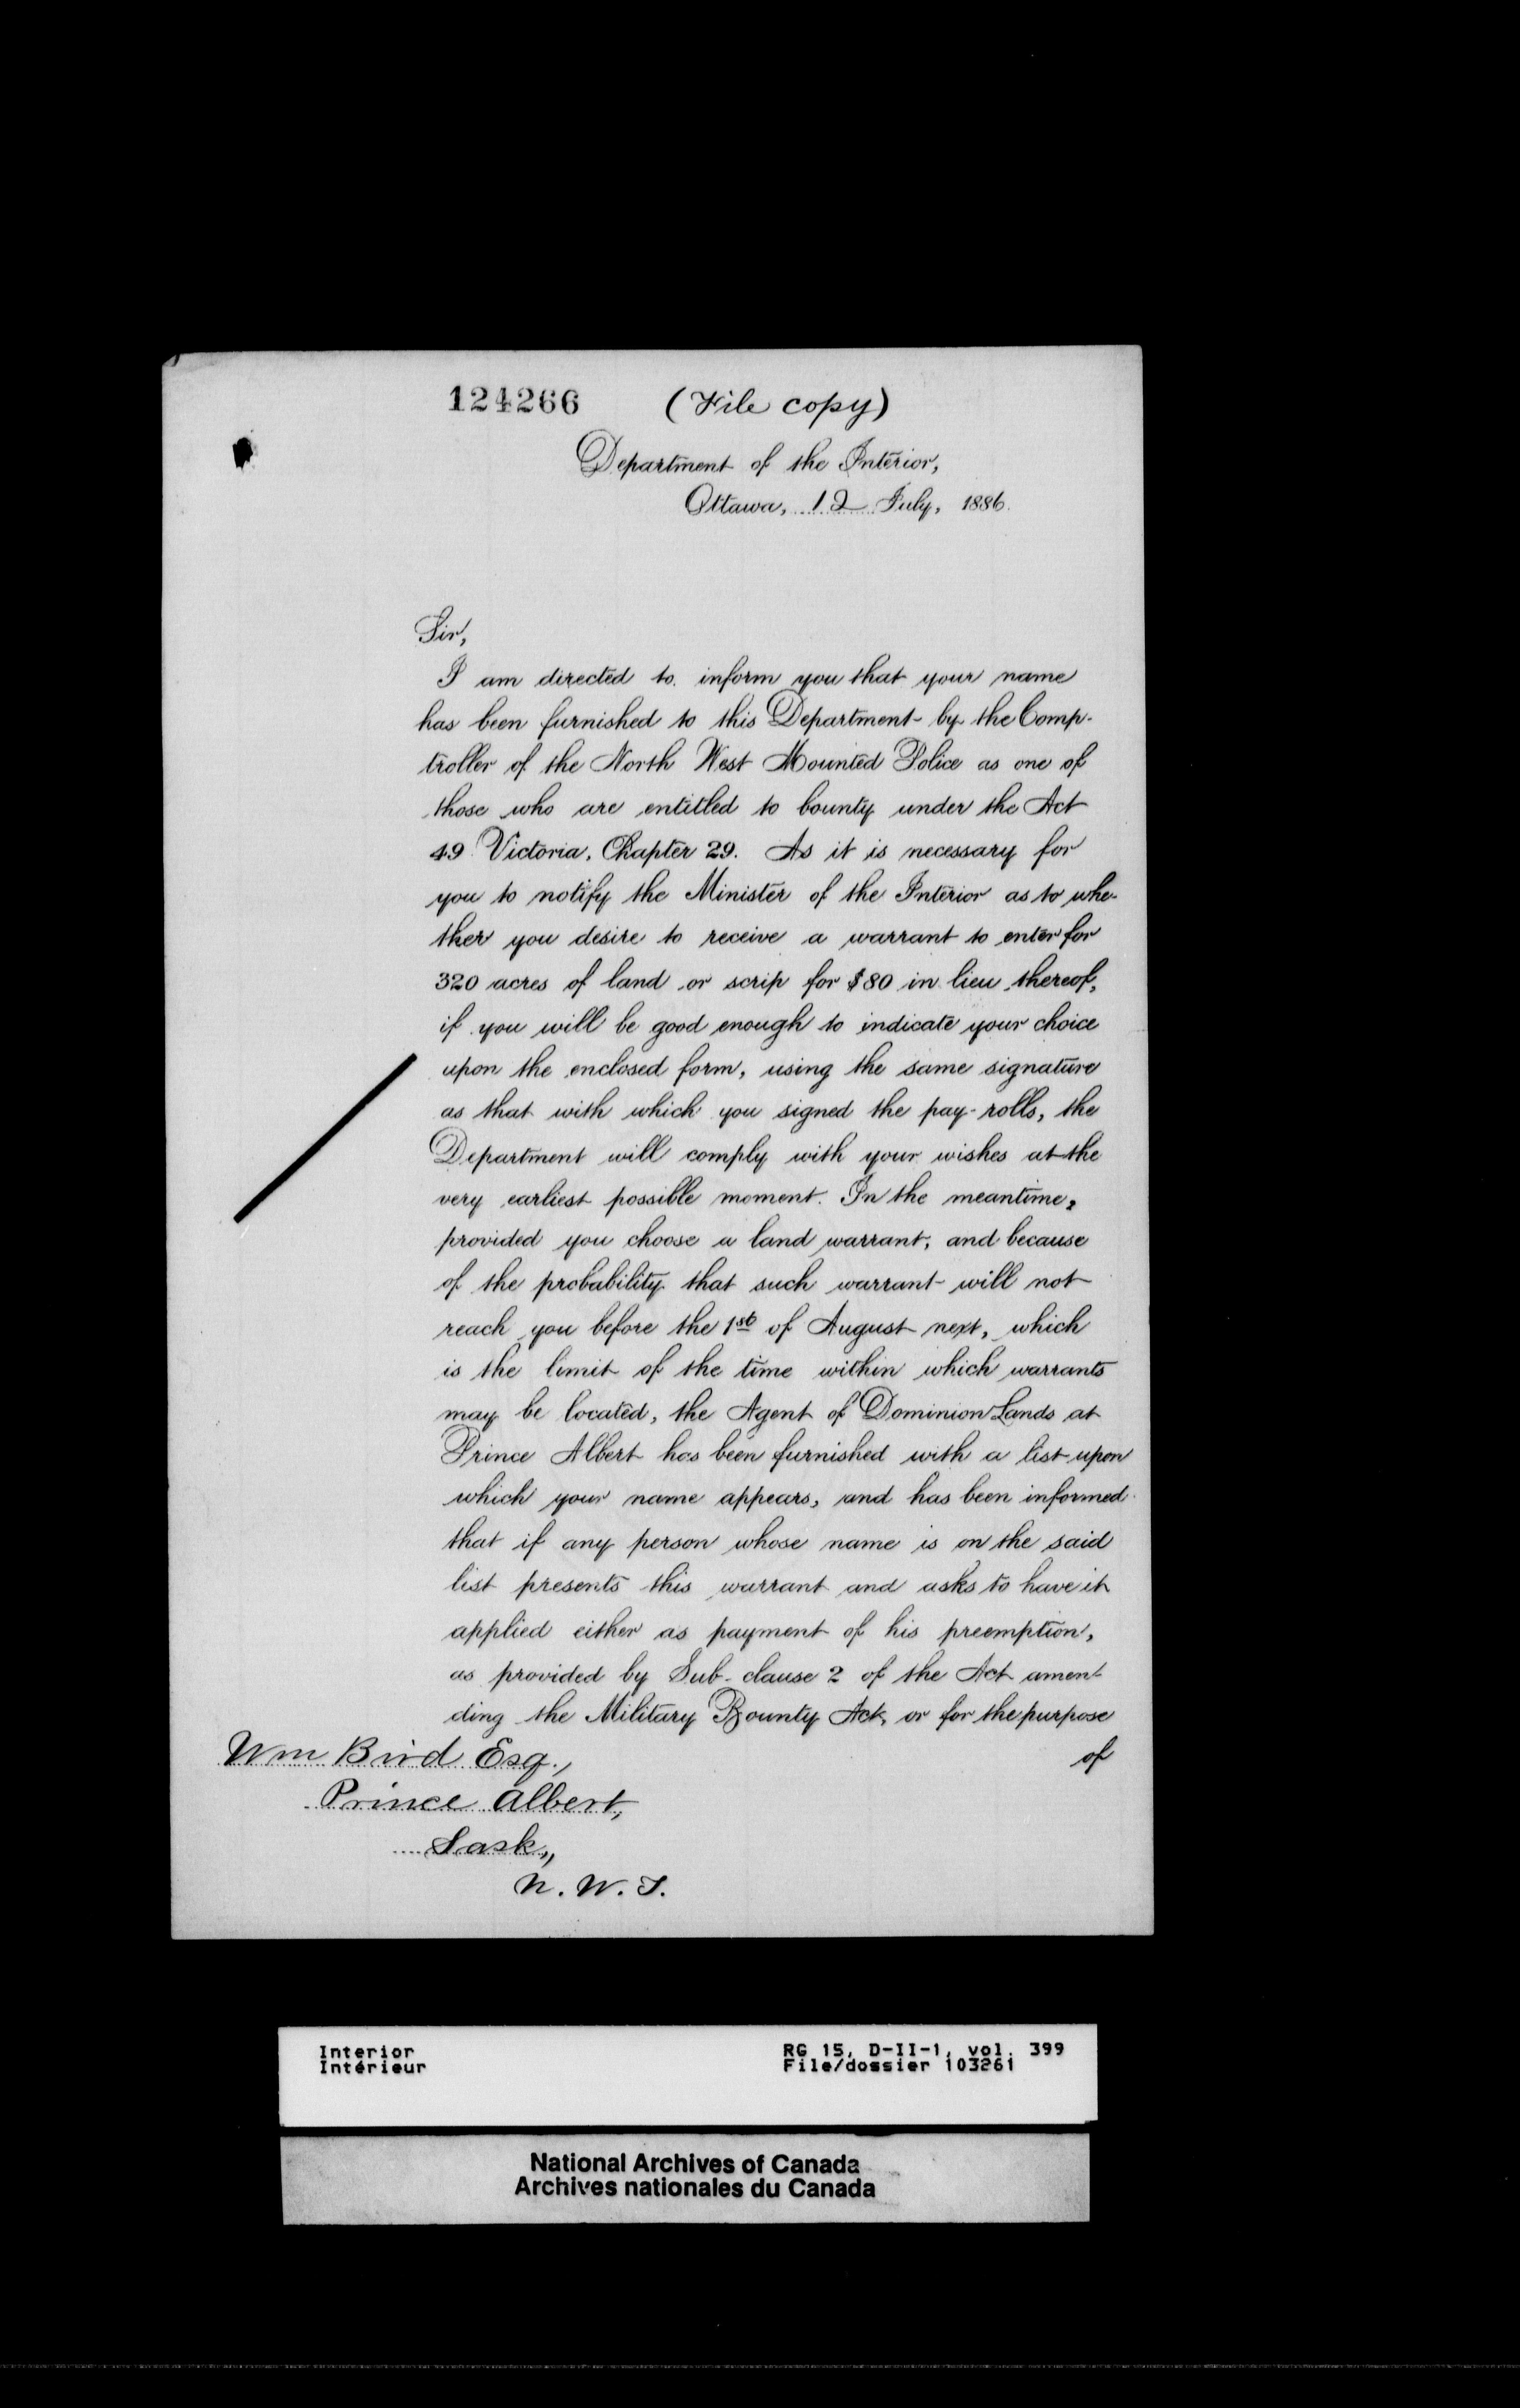 124266 (File copy)
Department of the Interior,
Ottawa, 12 July, 1886.
Sir,
I am directed to inform you that your name
has been furnished to this Department by the Comp-
troller of the North West Mounted Police as one of
those who are entitled to bounty under the Act
49 Victoria, Chapter 29. As it is necessary for
you to notify the Minister of the Interior as to whe-
ther you desire to receive a warrant to enter for
320 acres of land or scrip for $80 in lieu thereof,
if you will be good enough to indicate your choice
upon the enclosed form, using the same signature
as that with which you signed the pay-rolls, the
Department will comply with your wishes at the
very earliest possible moment. In the meantime,
provided you choose a land warrant, and because
of the probability that such warrant will not
reach you before the 1st of August next, which
is the limit of the time within which warrants
may be located, the Agent of Dominion Lands at
Prince Albert has been furnished with a list upon
which your name appears, and has been informed
that if any person whose name is on the said
list presents this warrant and asks to have it
applied either as payment of his preemption,
as provided by Sub-clause 2 of the Act amen-
ding the Military Bounty Act, or for the purpose
of
Wm Bird Esq.,
Prince Albert,
Sask.,
N. W. T.
Interior RG 15, D-II-1, vol. 399
Intérieur File/dossier 103261
National Archives of Canada
Archives nationales du Canada